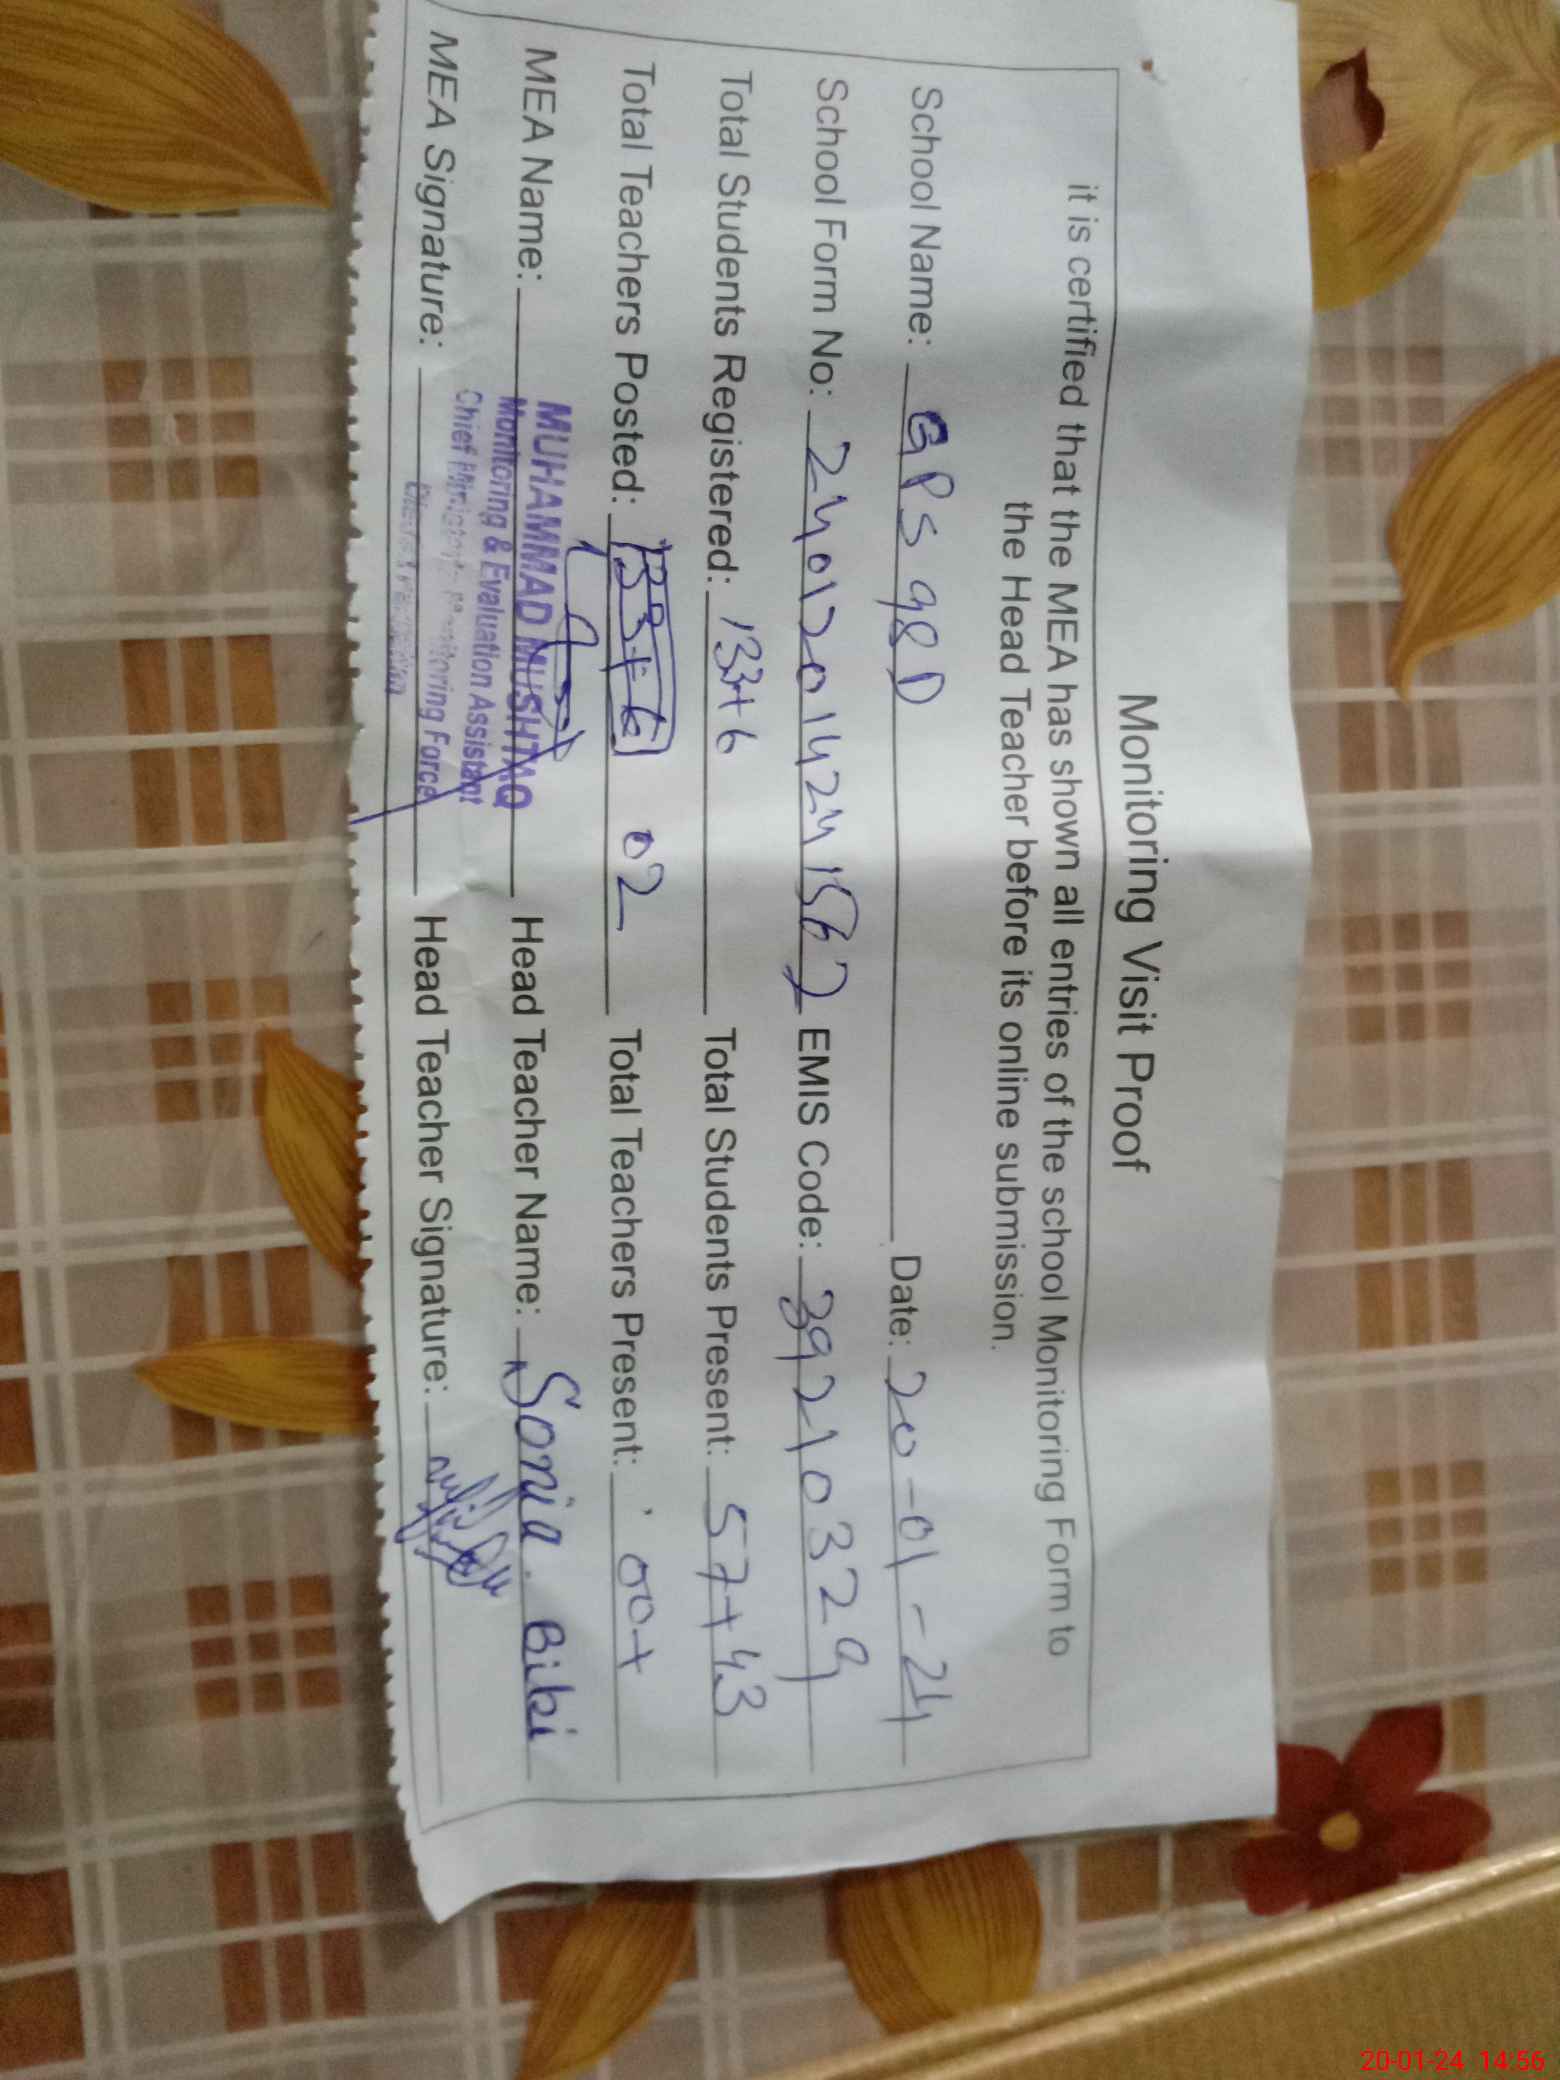 Monitoring Visit Proof
it is certified that the MEA has shown all entries of the school Monitoring Form to
the Head Teacher before its online submission.
School Name: GPS 98D Date: 20-01-24
School Form No: 24012014241562 EMIS Code: 39210329
Total Students Registered: 133+6 Total Students Present: 57+43
Total Teachers Posted: 02 Total Teachers Present: 00+
MEA Name: MUHAMMAD MUSHTAQ Head Teacher Name: Sonia Bibi
Monitoring & Evaluation Assistant
Chief Minister's Monitoring Force
MEA Signature: Head Teacher Signature:
20-01-24 14:56